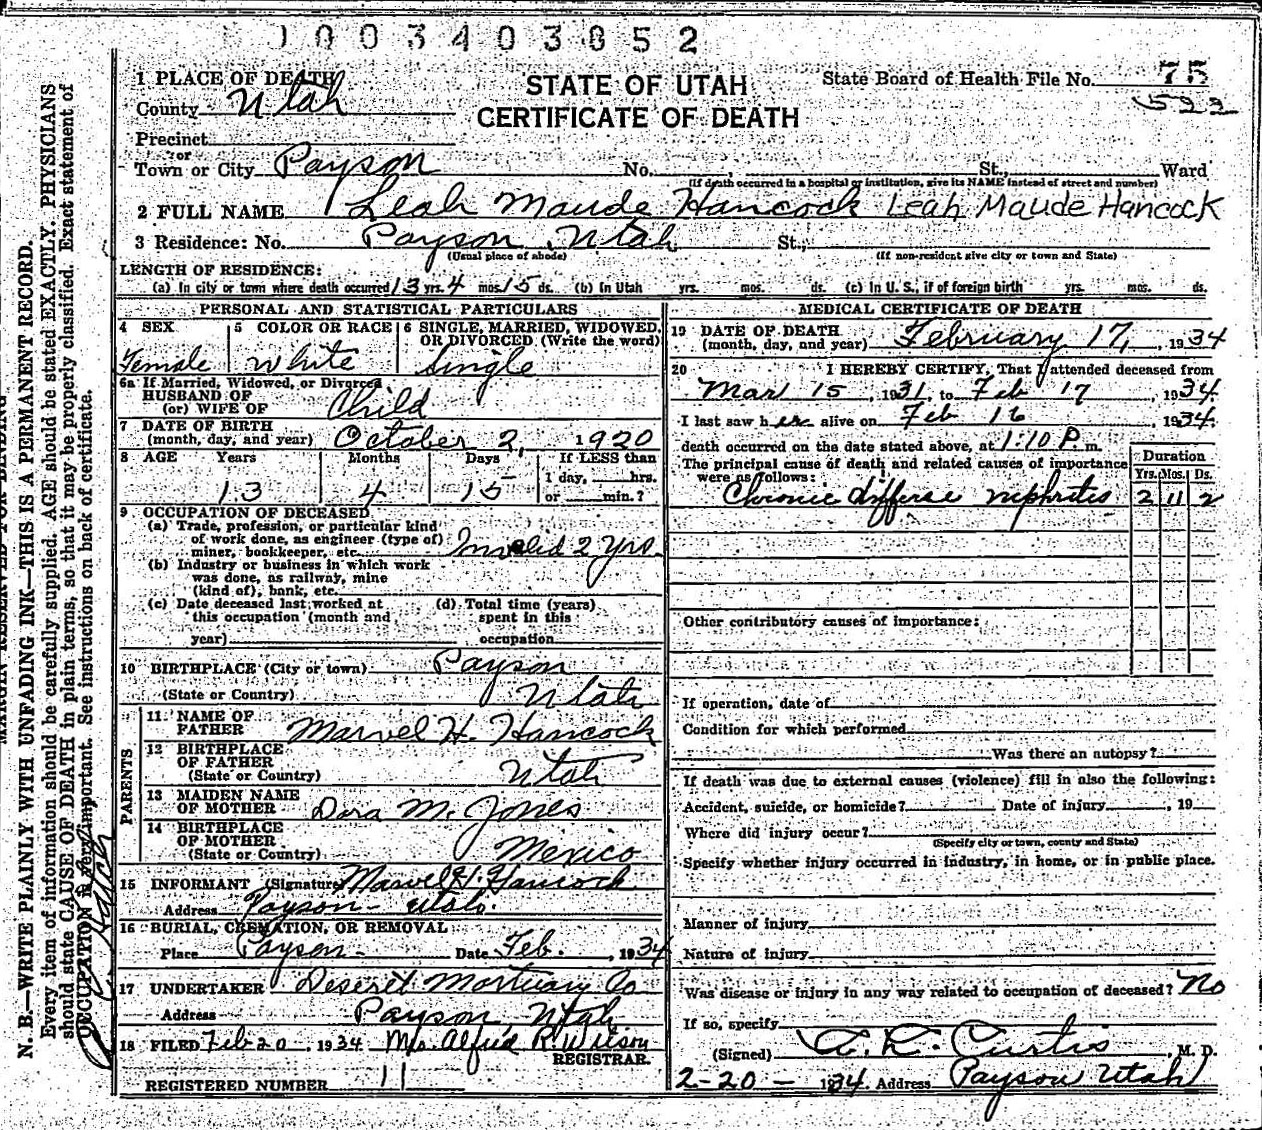 1003403852
1 PLACE OF DEATH
County Utah
STATE OF UTAH
CERTIFICATE OF DEATH
State Board of Health File No. 75
522
Precinct
or
Town or City Payson No. , St., Ward
(If death occurred in a hospital or institution, give its NAME instead of street and number)
2 FULL NAME Leah Maude Hancock Leah Maude Hancock
3 Residence: No. Payson, Utah St.,
(Usual place of abode) (If non-resident give city or town and State)
LENGTH OF RESIDENCE:
(a) In city or town where death occurred 13 yrs. 4 mos. 15 ds. (b) In Utah yrs. mos. ds. (c) In U. S., if of foreign birth yrs. mos. ds.
PERSONAL AND STATISTICAL PARTICULARS
4 SEX
Female
5 COLOR OR RACE
White
6 SINGLE, MARRIED, WIDOWED,
OR DIVORCED (Write the word)
Single
6a If Married, Widowed, or Divorced
HUSBAND OF
(or) WIFE OF Child
7 DATE OF BIRTH
(month, day, and year) October 2, 1920
8 AGE Years Months Days If LESS than
1 day, hrs.
13 4 15 or min.?
9 OCCUPATION OF DECEASED
(a) Trade, profession, or particular kind
of work done, as engineer (type of)
miner, bookkeeper, etc. Invalid 2 Yrs.
(b) Industry or business in which work
was done, as railway, mine
(kind of), bank, etc.
(c) Date deceased last worked at
this occupation (month and
year)
(d) Total time (years)
spent in this
occupation
10 BIRTHPLACE (City or town) Payson
(State or Country) Utah
PARENTS
11 NAME OF
FATHER Marvel H. Hancock
12 BIRTHPLACE
OF FATHER
(State or Country) Utah
13 MAIDEN NAME
OF MOTHER Dora M. Jones
14 BIRTHPLACE
OF MOTHER
(State or Country) Mexico
15 INFORMANT (Signature) Marvel H. Hancock
Address Payson - Utah.
16 BURIAL, CREMATION, OR REMOVAL
Place Payson - Date Feb. , 1934
17 UNDERTAKER Deseret Mortuary Co
Address Payson, Utah
18 FILED Feb 20, 1934 Mrs. Alfred R Wilson
REGISTRAR.
REGISTERED NUMBER 11
MEDICAL CERTIFICATE OF DEATH
19 DATE OF DEATH
(month, day, and year) February 17, 1934
20 I HEREBY CERTIFY, That I attended deceased from
Mar 15, 1931, to Feb 17, 1934.
I last saw her alive on Feb 16, 1934.
death occurred on the date stated above, at 1:10 P. m.
The principal cause of death and related causes of importance
were as follows:
Duration
Yrs. Mos. Ds.
Chronic diffuse nephritis 2 11 2
Other contributory causes of importance:
If operation, date of
Condition for which performed
Was there an autopsy?
If death was due to external causes (violence) fill in also the following:
Accident, suicide, or homicide? Date of injury , 19
Where did injury occur?
(Specify city or town, county and State)
Specify whether injury occurred in industry, in home, or in public place.
Manner of injury
Nature of injury
Was disease or injury in any way related to occupation of deceased? No
If so, specify
(Signed) A. L. Curtis, M. D.
2-20-1934 Address Payson Utah
N. B.—WRITE PLAINLY WITH UNFADING INK—THIS IS A PERMANENT RECORD.
Every item of information should be carefully supplied. AGE should be stated EXACTLY. PHYSICIANS
should state CAUSE OF DEATH in plain terms, so that it may be properly classified. Exact statement of
OCCUPATION is very important. See instructions on back of certificate.